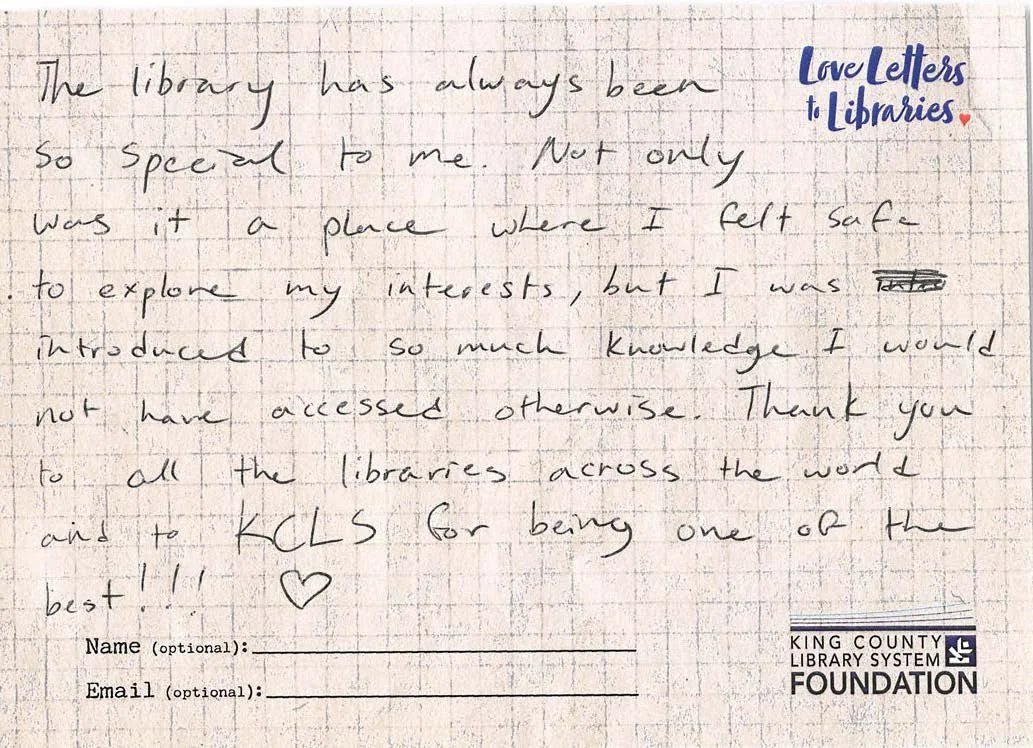 Love Letters
to Libraries
The library has always been
so special to me. Not only
was it a place where I felt safe
to explore my interests, but I was
introduced to so much knowledge I would
not have accessed otherwise. Thank you
to all the libraries across the world
and to KCLS for being one of the
best!!! ♡
Name (optional):
Email (optional):
KING COUNTY
LIBRARY SYSTEM
FOUNDATION